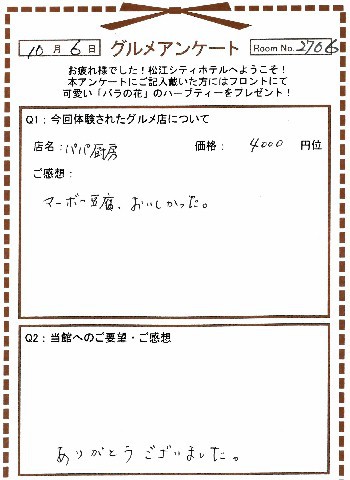 10月6日 グルメアンケート Room No. 2706
お疲れ様でした！松江シティホテルへようこそ！
本アンケートにご記入戴いた方にはフロントにて
可愛い「バラの花」のハーブティーをプレゼント！
Q1：今回体験されたグルメ店について
店名：パパ厨房 価格： 4000 円位
ご感想：
マーボー豆腐、おいしかった。
Q2：当館へのご要望・ご感想
ありがとうございました。